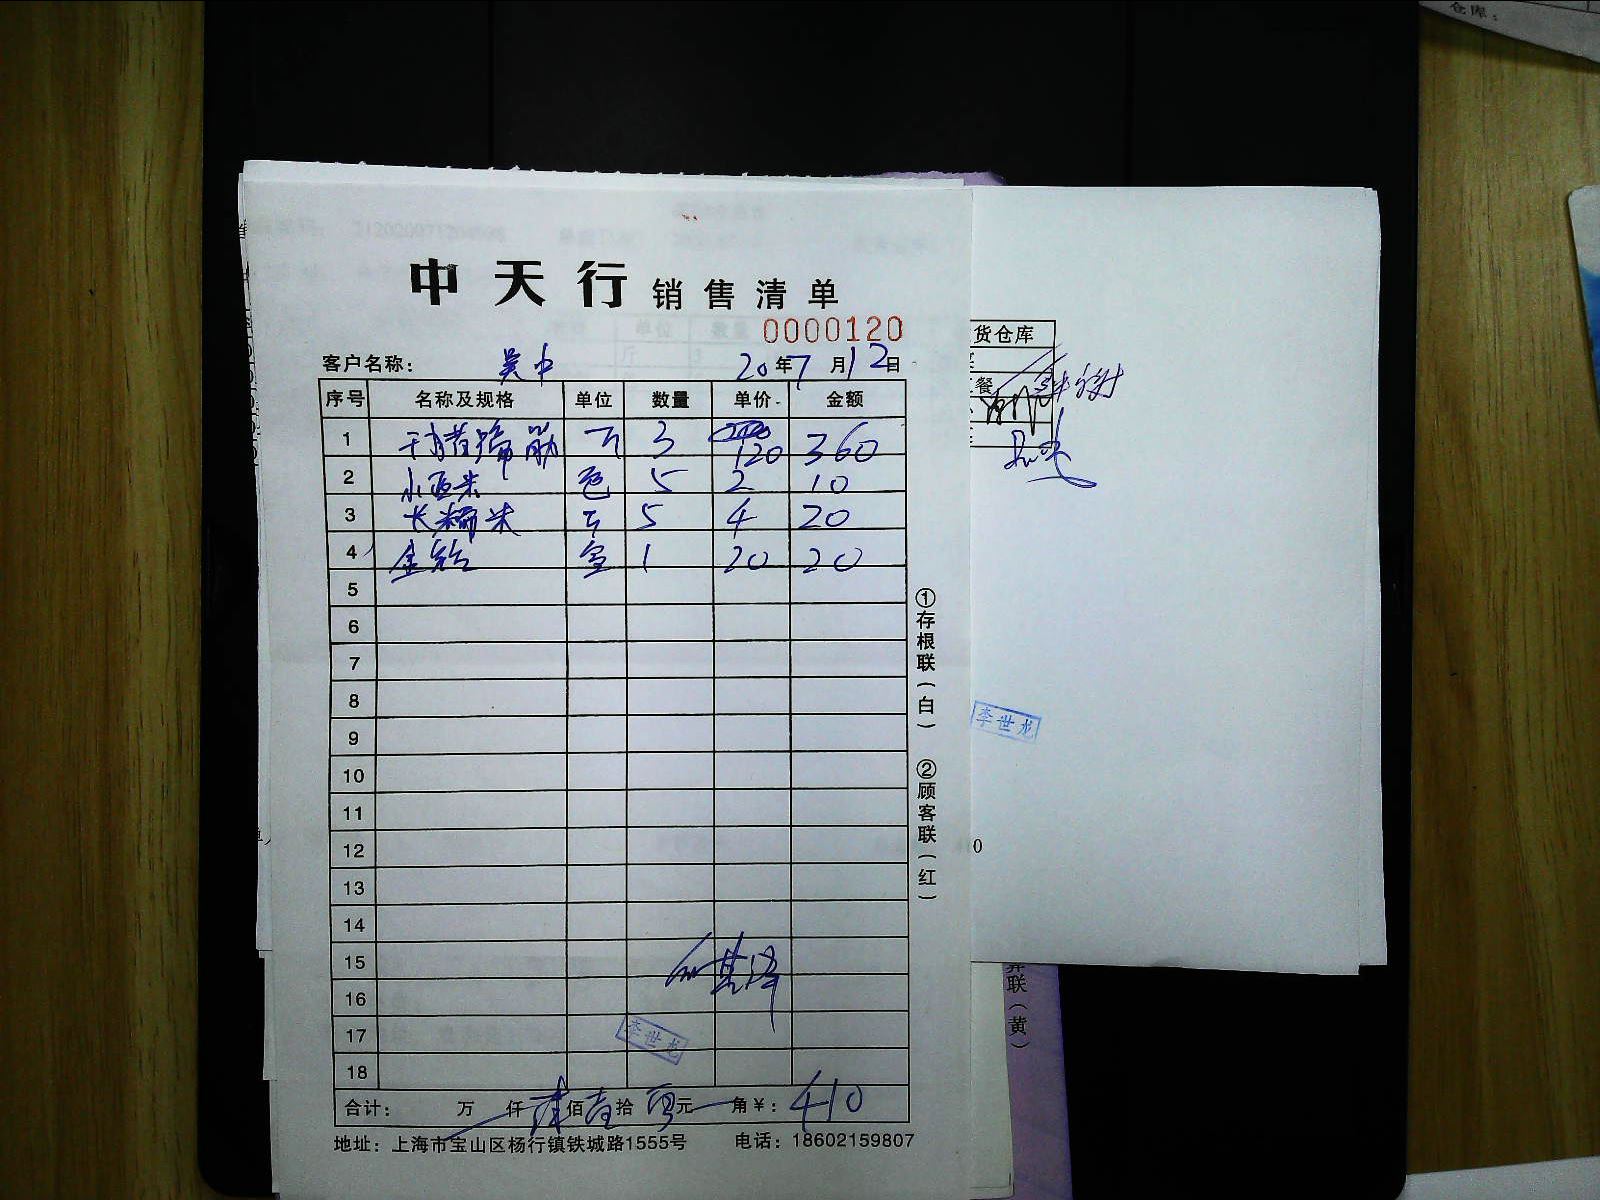 仓库:
中天行 销售清单
0000120
客户名称: 吴中 20年7月12日
序号 名称及规格 单位 数量 单价 金额
1 3 120 360
2 小西米 包 5 2 10
3 长糯米 5 4 20
4 1 20 20
5
6
7
8
9
10
11
12
13
14
15
16
17
18
李世龙
合计: 万 仟 肆佰壹拾零元 角¥: 410
地址: 上海市宝山区杨行镇铁城路1555号 电话: 18602159807
①存根联(白) ②顾客联(红)
货仓库
餐
李世龙
0
联(黄)